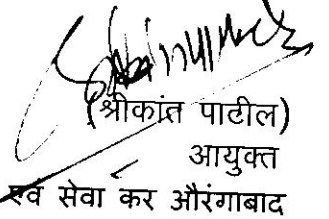 (श्रीकांत पाटील)
आयुक्त
एवं सेवा कर औरंगाबाद